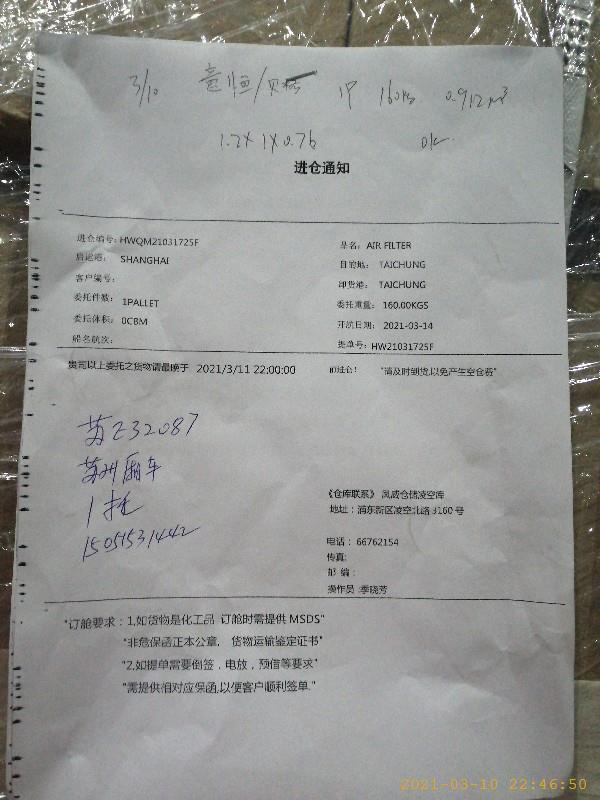 3/10 意恒/贝 1P 160KG 0.912M³
1.2×1×0.76 OK
进仓通知
进仓编号: HWQM21031725F 品名: AIR FILTER
启运港: SHANGHAI 目的地: TAICHUNG
客户编号: 卸货港: TAICHUNG
委托件数: 1PALLET 委托重量: 160.00KGS
委托体积: 0CBM 开航日期: 2021-03-14
船名航次: 提单号: HW21031725F
贵司以上委托之货物请最晚于 2021/3/11 22:00:00 前进仓! "请及时到货,以免产生空仓费"
苏E32087
苏州 车
1托
15051531442
《仓库联系》 凤威仓储凌空库
地址: 浦东新区凌空北路 3160 号
电话: 66762154
传真:
邮 编:
操作员 :季晓芳
"订舱要求: 1,如货物是化工品 订舱时需提供 MSDS"
"非危保函正本公章, 货物运输鉴定证书"
"2,如提单需要倒签,电放,预借等要求"
"需提供相对应保函,以便客户顺利签单."
2021-03-10 22:46:50